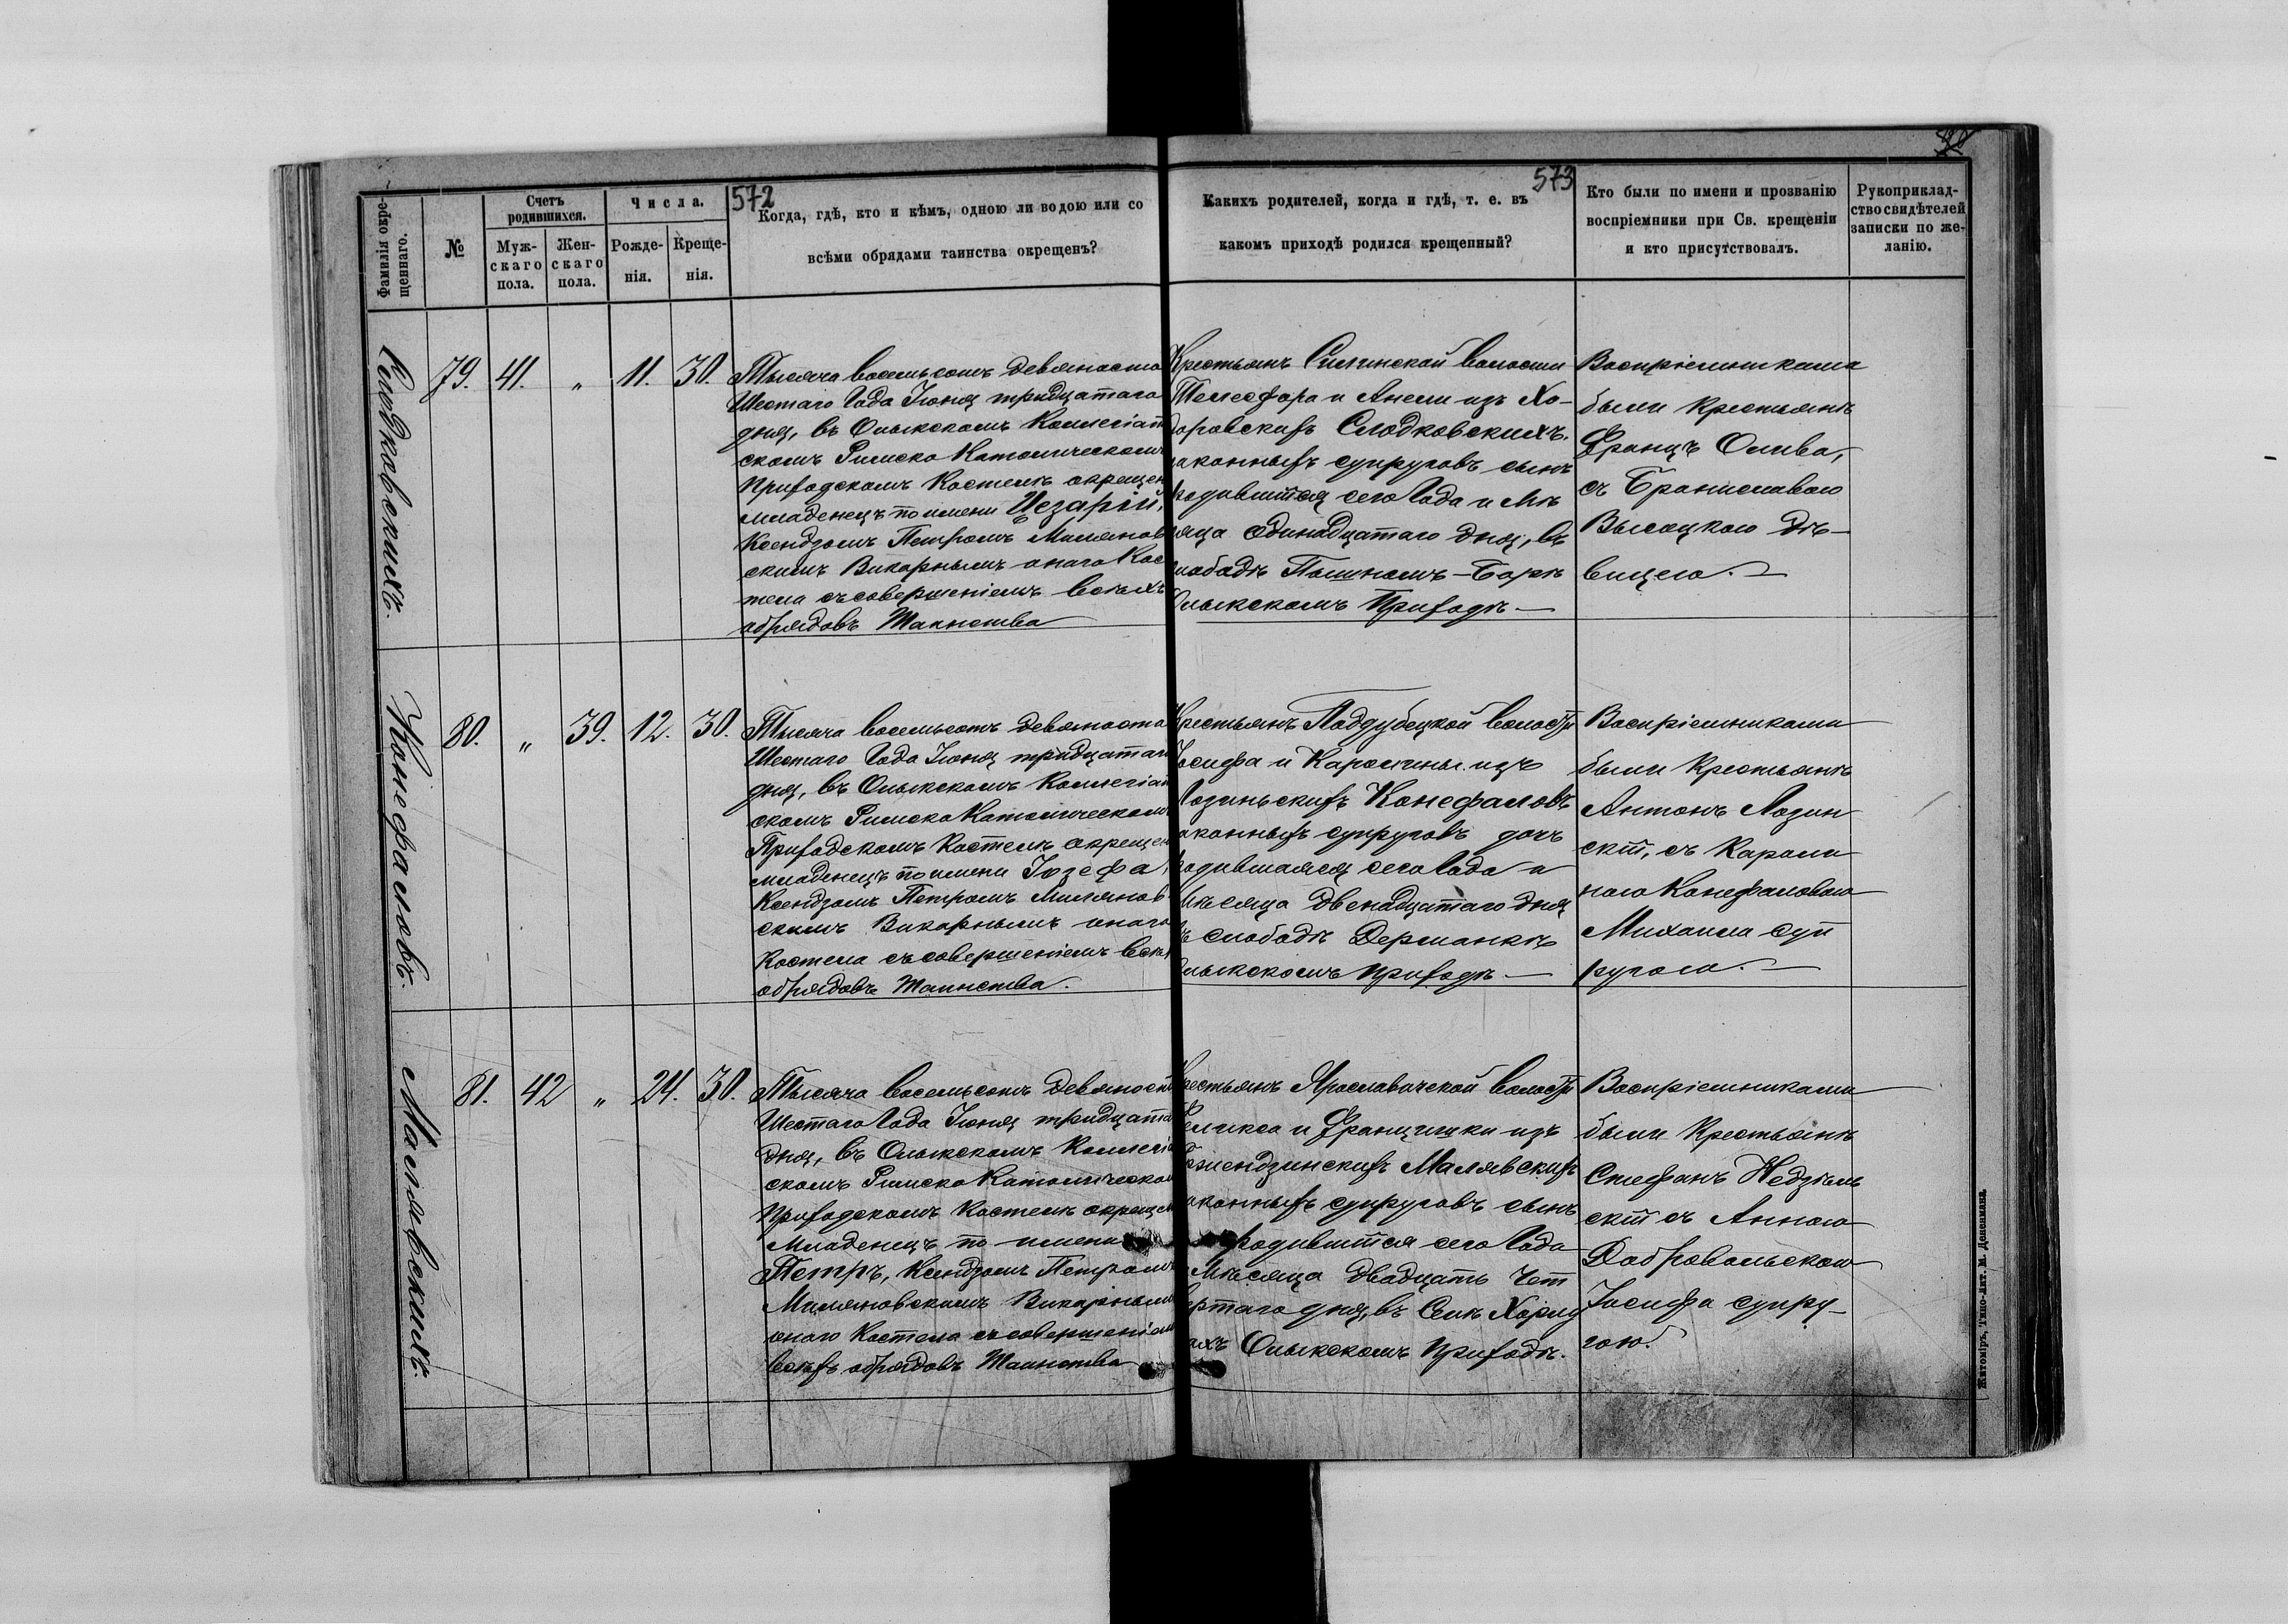 572
573
Фамилія окре-
щеннаго.
№
Счетъ
родившихся.
Муж-
скаго
пола.
Жен-
скаго
пола.
Числа.
Рожде-
нія.
Креще-
нія.
Когда, гдѣ, кто и кѣмъ, одною ли водою или со
всѣми обрядами таинства окрещенъ?
Какихъ родителей, когда и гдѣ, т. е. въ
какомъ приходѣ родился крещенный?
Кто были по имени и прозванію
воспріемники при Св. крещеніи
и кто присутствовалъ.
Рукоприклад-
ство свидѣтелей
записки по же-
ланію.
Слодковскихъ.
79. 41. „ 11. 30.
Тысяча восемьсотъ девяноста
Шестаго Года Іюня тридцатаго
дня, въ Олыкскомъ Коллегіат
скомъ Римско Католическомъ
Приходскомъ Костелѣ окрещен
младенецъ по имени Цезарій,
Ксендзомъ Петромъ Милянов
скимъ Викарнымъ онаго Кос
тела съ совершеніемъ всѣхъ
обрядовъ Таинства
Крестьянъ Силинской волости
Телесфора и Анели изъ Хо-
доровскихъ Слодковскихъ.
аконныхъ супруговъ сынъ
родившійся сего Года и Мѣ
яца одинадцатаго дня, въ
лободѣ Пышномъ-Боркѣ
Олыкскомъ Приходѣ —
Воспріемниками
были Крестьянѣ
Францъ Олива,
съ Брониславою
Высоцкою дѣ-
вицею. —
Конефаловъ.
80. „ 39. 12. 30.
Тысяча восемьсотъ девяноста
Шестаго Года Іюня тридцатаго
дня, въ Олыкскомъ Коллегіат
скомъ Римско Католическомъ
Приходскомъ Костелѣ окрещен
младенецъ по имени Іозефа,
Ксендзомъ Петромъ Милянов
скимъ Викарнымъ онаго
Костела съ совершеніемъ всѣхъ
обрядовъ Таинства.
Крестьянъ Поддубецкой волости
Іосифа и Каролины изъ
Лозиньскихъ Конефаловъ
аконныхъ супруговъ дочь
родившаяся сего Года и
Мѣсяца двенадцатаго дня
ъ слободѣ Дерманкѣ
Олыкскомъ Приходѣ —
Воспріемниками
были Крестьянѣ
Антонъ Лозин
скій, съ Кароли
ною Конефаловою
Михаила суп
ругою. —
Малявскихъ.
81. 42 „ 24. 30.
Тысяча восемьсотъ девяност
Шестаго Года Іюня тридцата
дня, въ Олыкскомъ Коллегіа
скомъ Римско Католическом
Приходскомъ Костелѣ окрещен
Младенецъ по имени
Петръ, Ксендзомъ Петромъ
Миляновскимъ Викарным
онаго Костела съ совершеніем
всѣхъ обрядовъ Таинства
Крестьянъ Ярославичской волости
Феликса и Францишки изъ
Малявскихъ
аконныхъ супруговъ сынъ
родившійся сего Года
Мѣсяца двадцать Чет
ертаго дня, въ Селѣ
ахъ Олыкскомъ Приходѣ.
Воспріемниками
были Крестьянѣ
Стефанъ Недзѣль
скій съ Анною
Добровольскою
Іосифа супру-
гою.
Житоміръ, Типо-Лит. М. Дененмана.